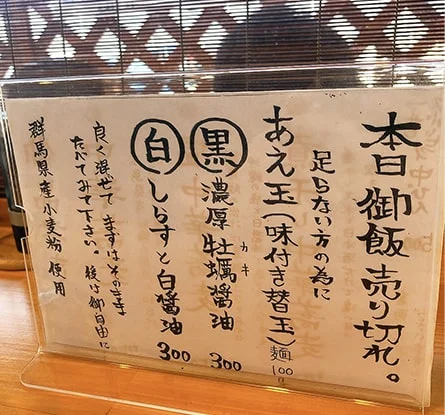 本日御飯売り切れ。
足らない方の為に
あえ玉(味付き替玉)麺100g
黒 濃厚牡蠣醤油 300
カキ
白 しらすと白醤油 300
良く混ぜて まずはそのまま
たべてみて下さい。後は御自由に
群馬県産小麦粉 使用